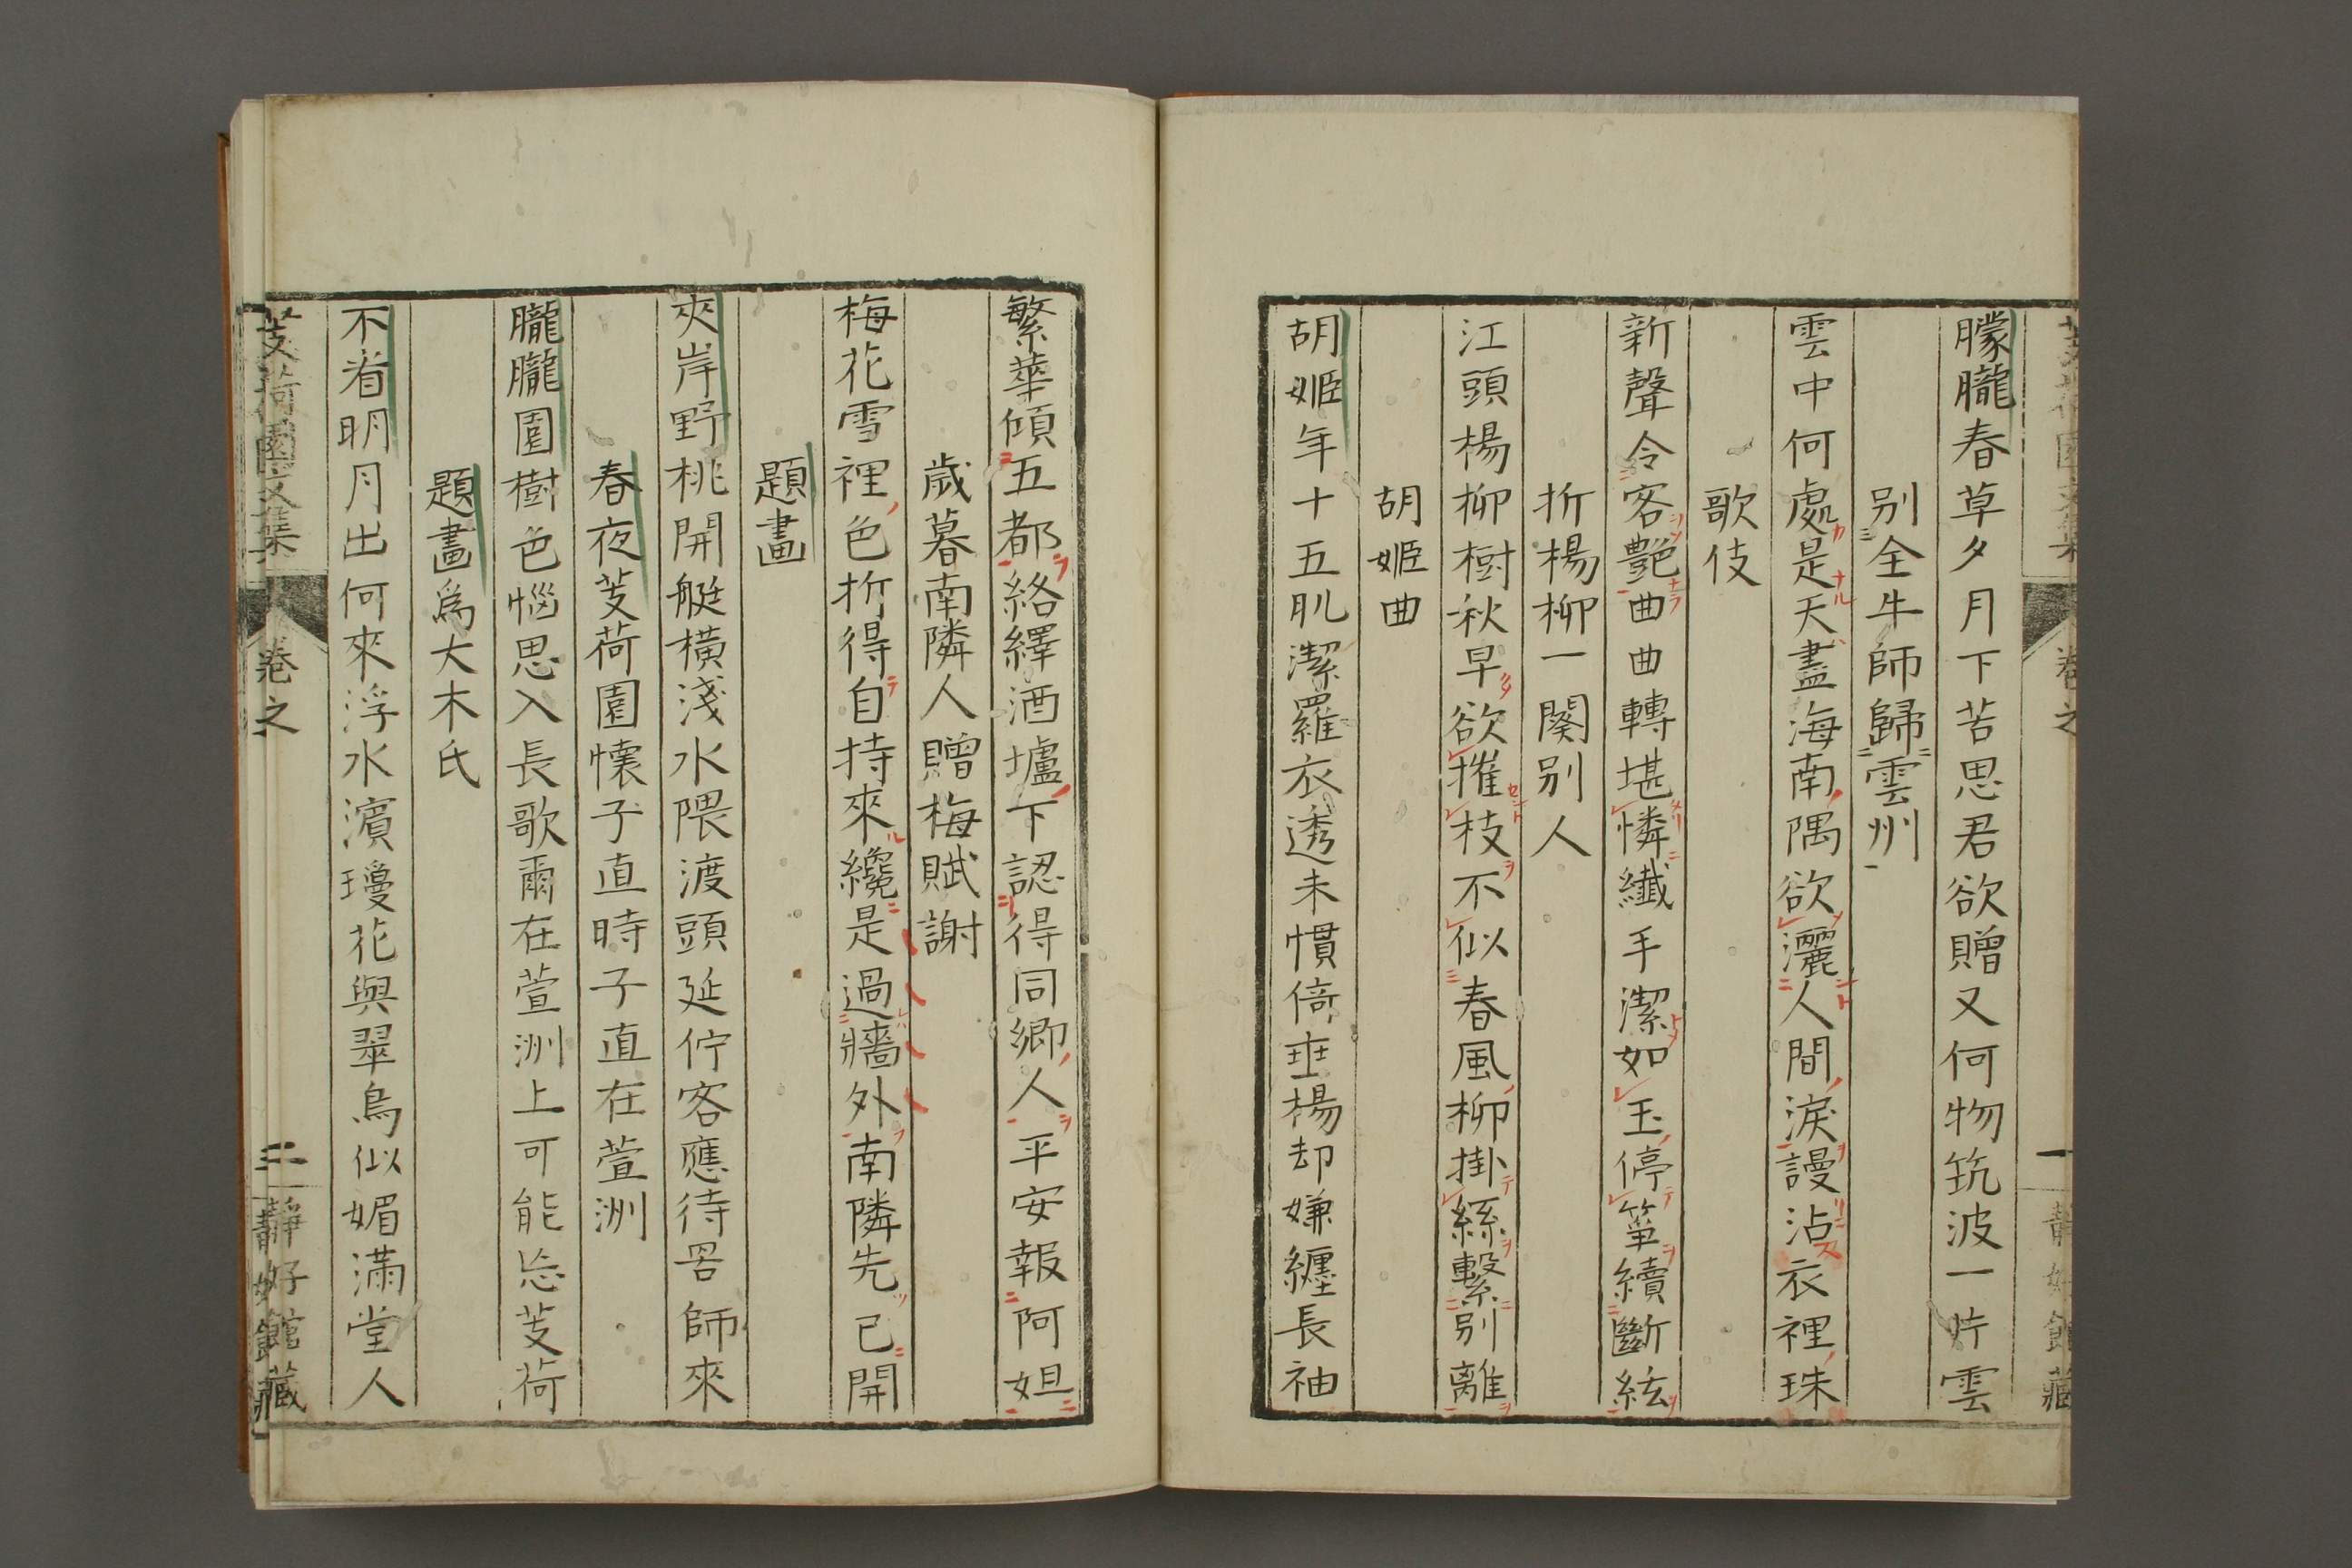 朦朧春草夕月下苦思君欲贈又何物筑波一片雲
別全牛師歸雲州
雲中何處是天盡海南隅欲灑人間淚謾沾衣裡珠
歌伎
新聲令客艶曲曲轉堪憐纖手潔如玉停箏續斷絃
折楊柳一闋別人
江頭楊柳樹秋早欲摧枝不似春風柳掛絲繫別離
胡姬曲
胡姬年十五肌潔羅衣透未慣倚垂楊却嫌纏長袖
繁華傾五都絡繹酒壚下認得同鄉人平安報阿妲
歲暮南隣人贈梅賦謝
梅花雪裡色折得自持來纔是過牆外南隣先已開
題畫
夾岸野桃開艇橫淺水隈渡頭延佇客應待罟師來
春夜芰荷園懷子直時子直在萱洲
朧朧園樹色惱思入長歌爾在萱洲上可能忘芰荷
題畫爲大木氏
不省明月出何來浮水濱瓊花與翠鳥似媚滿堂人
芰荷園文集 卷之 二 靜好館藏